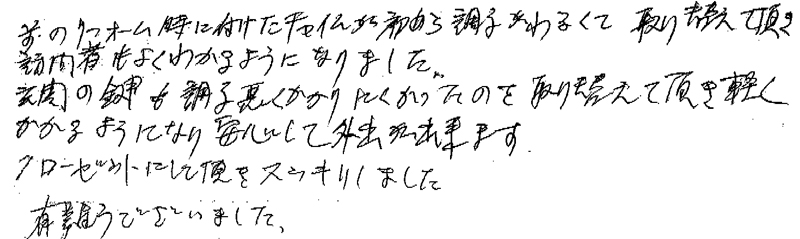 前のリフォーム時に付けたチャイムが初めから調子がわるくて 取り替えて頂き
訪問者もよくわかるようになりました。
玄関の鍵も調子悪くかかりにくかったのを取り替えて頂き軽く
かかるようになり安心して外出が出来ます
クローゼットにして頂きスッキリしました
有難うございました。